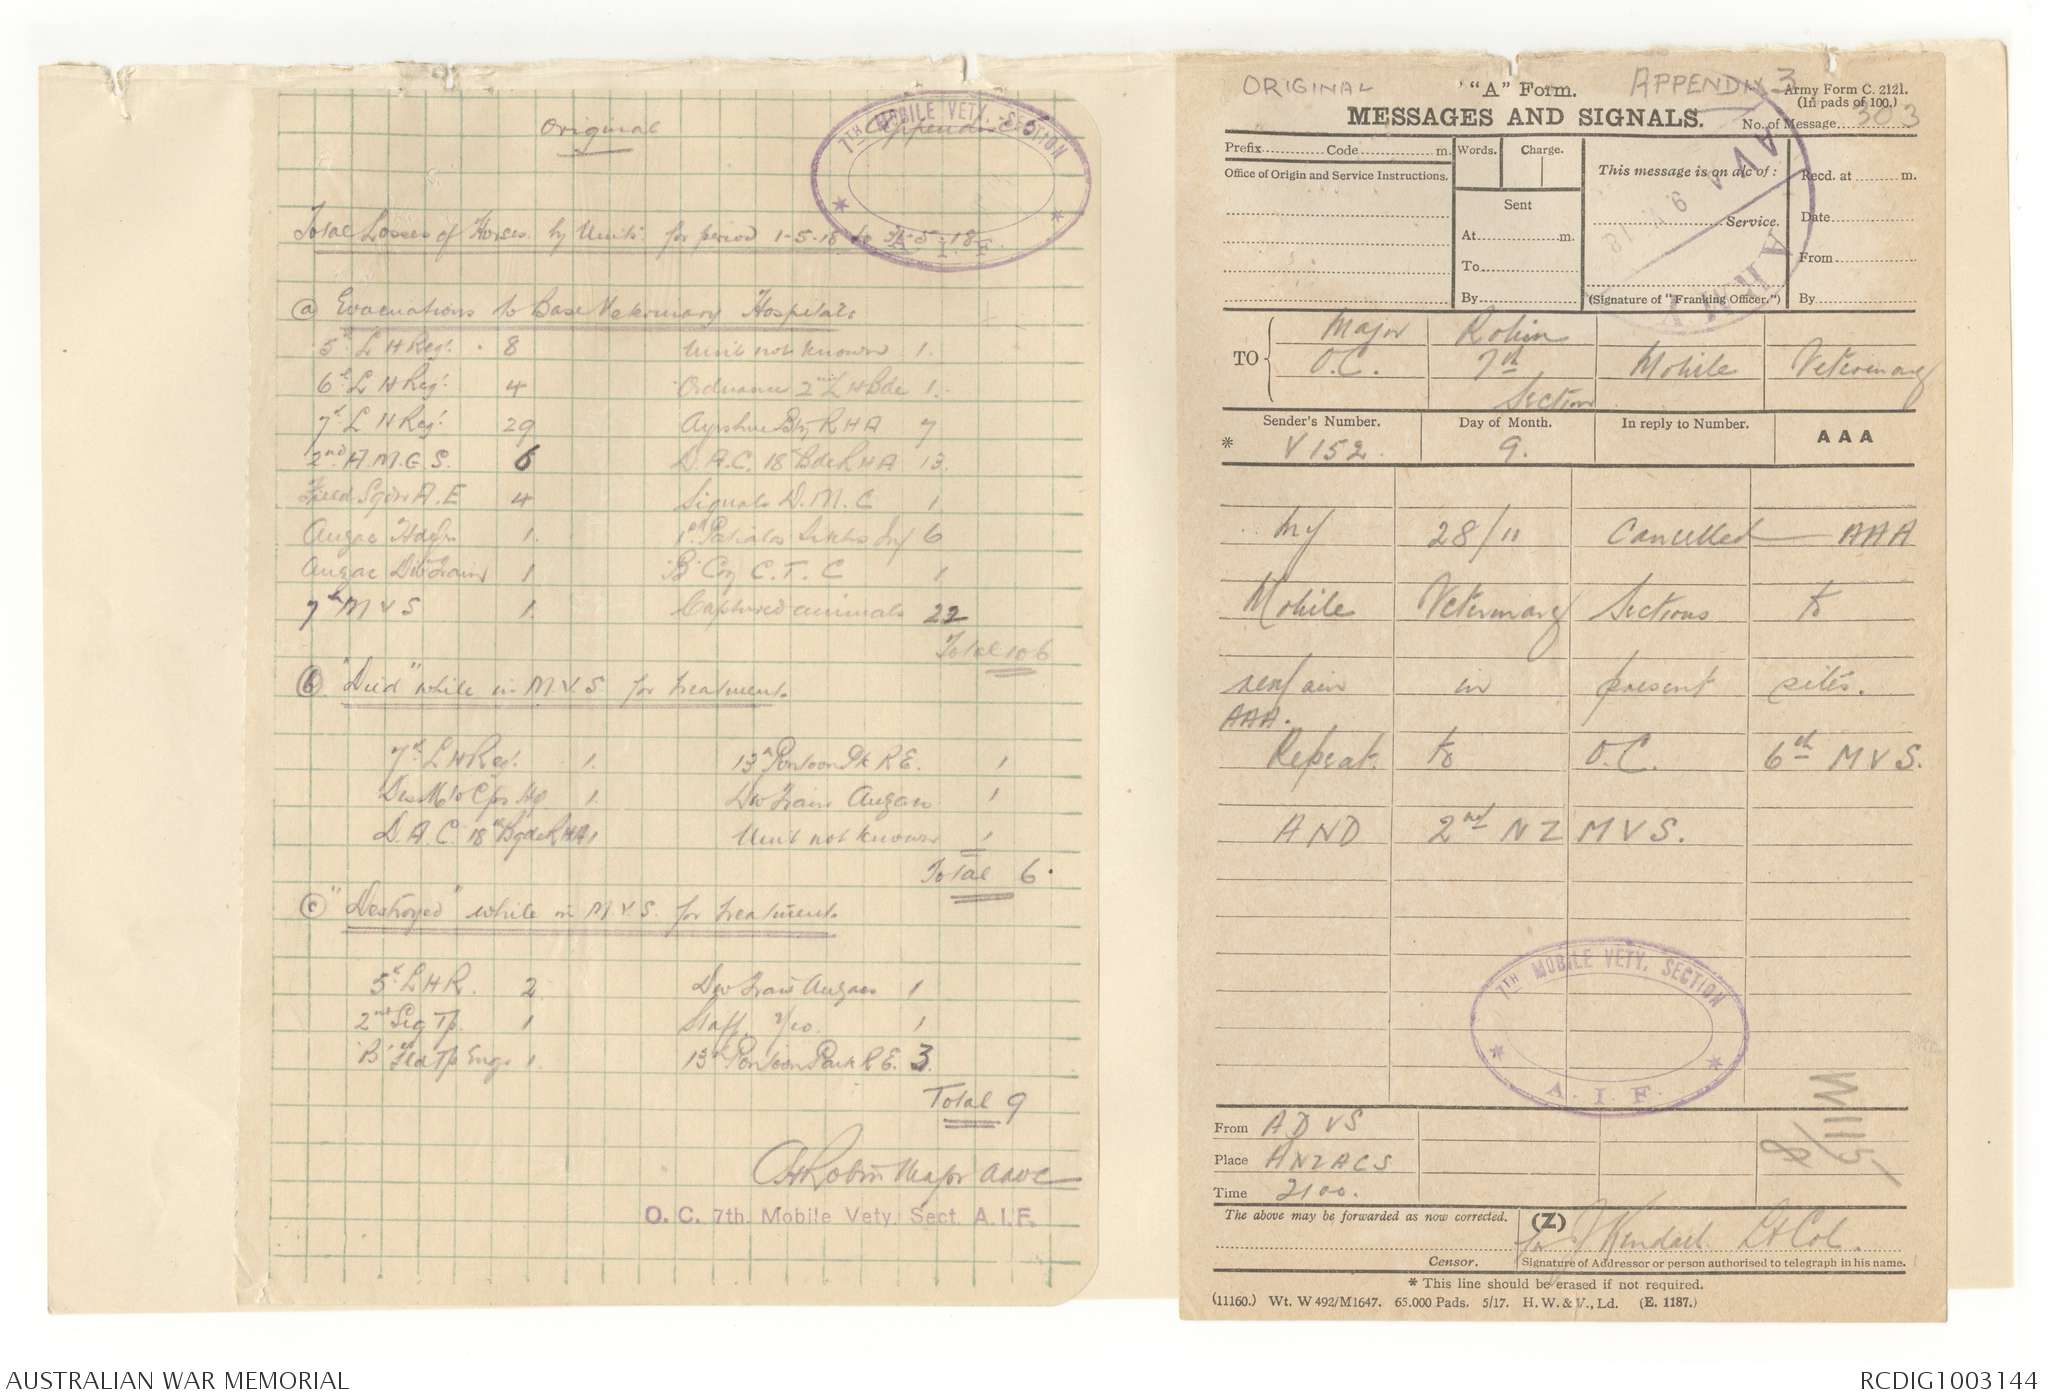 Original
Appendix 5
7TH MOBILE VETY. SECTION
A.I.F.
Total Losses of Horses by Units for period 1-5-18 to 31-5-18.
(a) Evacuations to Base Veterinary Hospitals
5th L H Regt. 8 Unit not known 1.
6th L H Regt. 4 Ordnance 2nd L H Bde 1.
7th L H Regt. 29 Ayrshire Bty R H A 7
2nd A.M.G.S. 6 D.A.C. 18th Bde R H A 13.
Field Sqdn A.E 4 Signals D.M.C 1
Anzac Hdqrs 1. 1st Patialas Sikhs Inf 6
Anzac Div Train 1 "B" Coy C.T.C 1.
7th M V S 1. Captured animals 22
Total 106
(b) "Died" while in M.V.S for treatment
7th L H Regt. 1. 13th Pontoon Pk R E. 1
Des Mtd Cps Hq 1. Div Train Anzac. 1
D.A.C. 18th Bgde R H A 1 Unit not known 1
Total 6.
(c) "Destroyed" while in M.V.S. for treatment
5th L H R. 2 Div Train Anzac 1
2nd Sig Tp. 1 Staff 1
'B' Fld Tp Eng. 1. 13th Pontoon Park R E. 3.
Total 9
Robin Major AAVC
O. C. 7th. Mobile Vety. Sect. A.I.F.
ORIGINAL "A" Form. APPENDIX 3 Army Form C. 2121.
(In pads of 100.)
MESSAGES AND SIGNALS. No. of Message 303
Prefix Code m. Words. Charge.
This message is on a/c of: Recd. at m.
Office of Origin and Service Instructions.
Sent
Service. Date
At m.
To From
By (Signature of "Franking Officer.") By
TO Major Robin
O.C. 7th Mobile Veterinary
Section
Sender's Number. Day of Month. In reply to Number. AAA
* V 152. 9.
My 28/11 Cancelled AAA
Mobile Veterinary Sections to
remain in present sites.
AAA.
Repeat to O.C. 6th M V S.
AND 2nd N Z M V S.
7TH MOBILE VETY. SECTION
A.I.F.
From A D V S
Place ANZACS
Time 2100.
The above may be forwarded as now corrected. (Z) for J Kendall Lt Col.
Censor. Signature of Addressor or person authorised to telegraph in his name.
* This line should be erased if not required.
(11160.) Wt. W 492/M1647. 65.000 Pads. 5/17. H. W. & V., Ld. (E. 1187.)
AUSTRALIAN WAR MEMORIAL RCDIG1003144